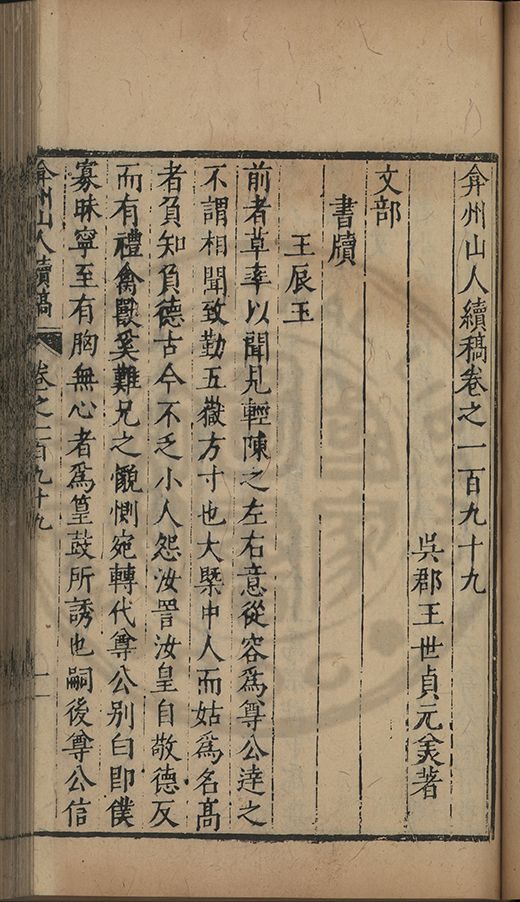 弇州山人續稿卷之一百九十九
吳郡王世貞元美著
文部
書牘
王辰玉
前者草率以聞見輕陳之左右意從容爲尊公達之
不謂相聞致勤五嶽方寸也大槩中人而姑爲名高
者負知負德古今不乏小人怨汝詈汝皇自敬德反
而有禮禽獸奚難兄之懇惻宛轉代尊公别白即僕
寡昧寧至有胸無心者爲簧鼓所誘也嗣後尊公信
弇州山人續稿 卷之一百九十九 一